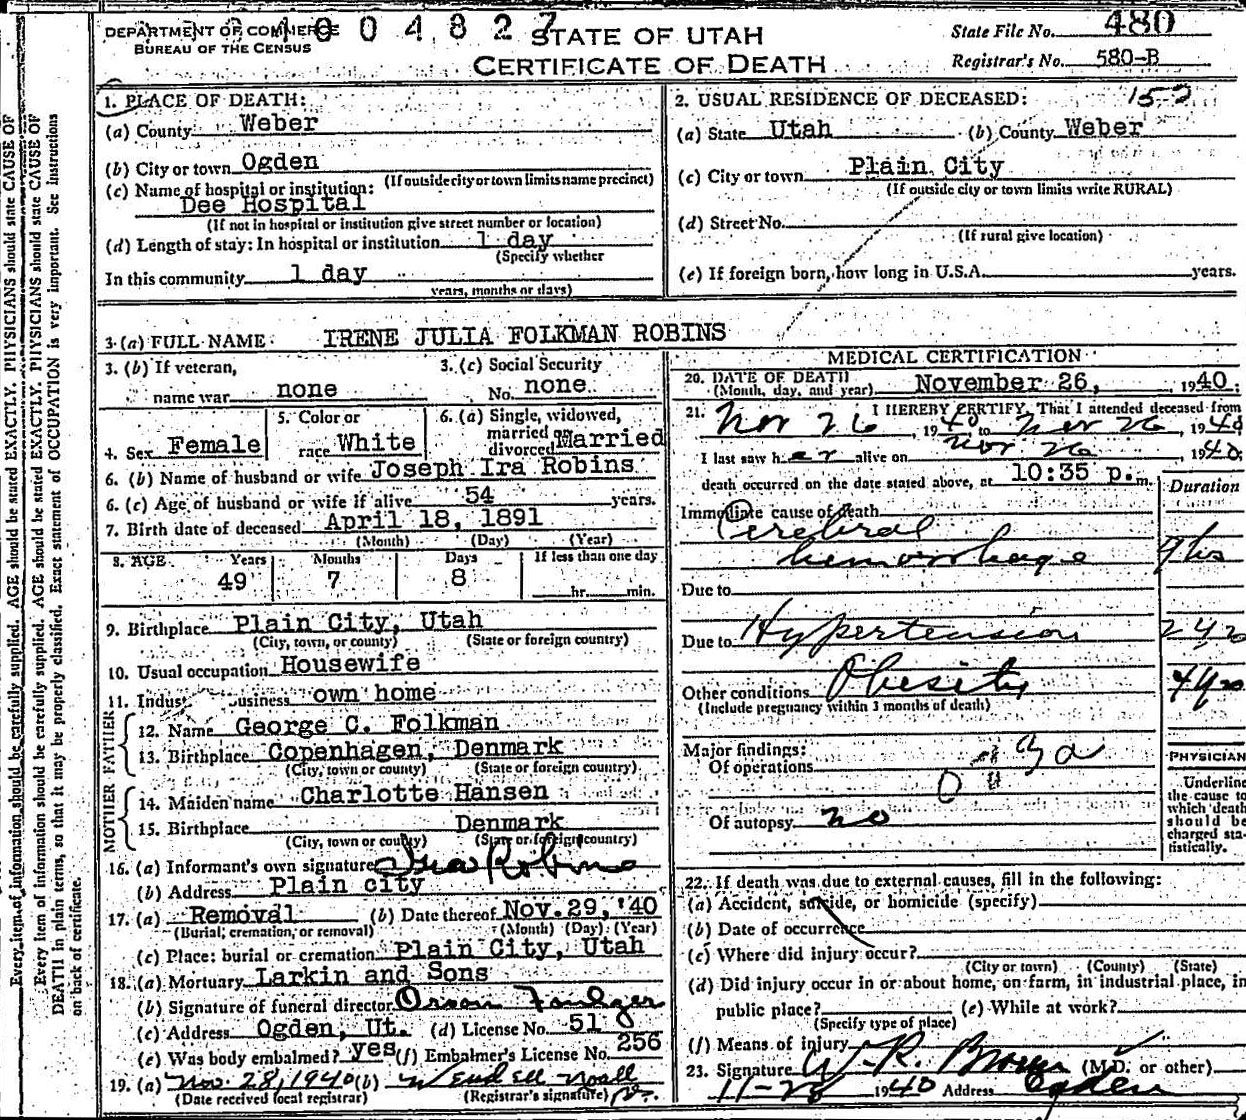 Every item of information should be carefully supplied. AGE should be stated EXACTLY. PHYSICIANS should state CAUSE OF
Every item of information should be carefully supplied. AGE should be stated EXACTLY. PHYSICIANS should state CAUSE OF
DEATH in plain terms, so that it may be properly classified. Exact statement of OCCUPATION is very important. See instructions
on back of certificate.
DEPARTMENT OF COMMERCE
BUREAU OF THE CENSUS
1004827
STATE OF UTAH
CERTIFICATE OF DEATH
State File No. 480
Registrar's No. 580-B
1. PLACE OF DEATH:
(a) County Weber
(b) City or town Ogden
(If outside city or town limits name precinct)
(c) Name of hospital or institution:
Dee Hospital
(If not in hospital or institution give street number or location)
(d) Length of stay: In hospital or institution 1 day
(Specify whether
In this community 1 day
years, months or days)
2. USUAL RESIDENCE OF DECEASED:
(a) State Utah (b) County Weber
(c) City or town Plain City
(If outside city or town limits write RURAL)
(d) Street No.
(If rural give location)
(e) If foreign born, how long in U.S.A. years.
3. (a) FULL NAME IRENE JULIA FOLKMAN ROBINS
3. (b) If veteran,
name war none
3. (c) Social Security
No. none
4. Sex Female
5. Color or
race White
6. (a) Single, widowed,
married or
divorced Married
6. (b) Name of husband or wife Joseph Ira Robins
6. (c) Age of husband or wife if alive 54 years.
7. Birth date of deceased April 18, 1891
(Month) (Day) (Year)
8. AGE Years Months Days If less than one day
49 7 8 hr. min.
9. Birthplace Plain City, Utah
(City, town, or county) (State or foreign country)
10. Usual occupation Housewife
11. Indust usiness own home
FATHER
12. Name George C. Folkman
13. Birthplace Copenhagen, Denmark
(City, town or county) (State or foreign country)
MOTHER
14. Maiden name Charlotte Hansen
15. Birthplace Denmark
(City, town or county) (State or foreign country)
16. (a) Informant's own signature Ira Robins
(b) Address Plain city
17. (a) Removal (b) Date thereof Nov. 29, '40
(Burial; cremation, or removal) (Month) (Day) (Year)
(c) Place: burial or cremation Plain City, Utah
18. (a) Mortuary Larkin and Sons
(b) Signature of funeral director Orson Foulger
(c) Address Ogden, Ut. (d) License No. 51
(e) Was body embalmed? yes (f) Embalmer's License No. 256
19. (a) Nov. 28, 1940 (b) Wendell Noall
(Date received local registrar) (Registrar's signature)
MEDICAL CERTIFICATION
20. DATE OF DEATH
(Month, day, and year) November 26, 1940
21. I HEREBY CERTIFY, That I attended deceased from
Nov 26, 1940 to Nov 26, 1940
I last saw her alive on Nov 26, 1940;
death occurred on the date stated above, at 10:35 p.m.
Duration
Immediate cause of death
Cerebral
hemorrhage 9 hs
Due to
Due to Hypertension
Other conditions Obesity
(Include pregnancy within 3 months of death)
Major findings:
Of operations
Of autopsy no
PHYSICIAN
Underline
the cause to
which death
should be
charged sta-
tistically.
22. If death was due to external causes, fill in the following:
(a) Accident, suicide, or homicide (specify)
(b) Date of occurrence
(c) Where did injury occur?
(City or town) (County) (State)
(d) Did injury occur in or about home, on farm, in industrial place, in
public place? (e) While at work?
(Specify type of place)
(f) Means of injury
23. Signature W. R. Brown (M.D. or other)
11-28 1940 Address Ogden